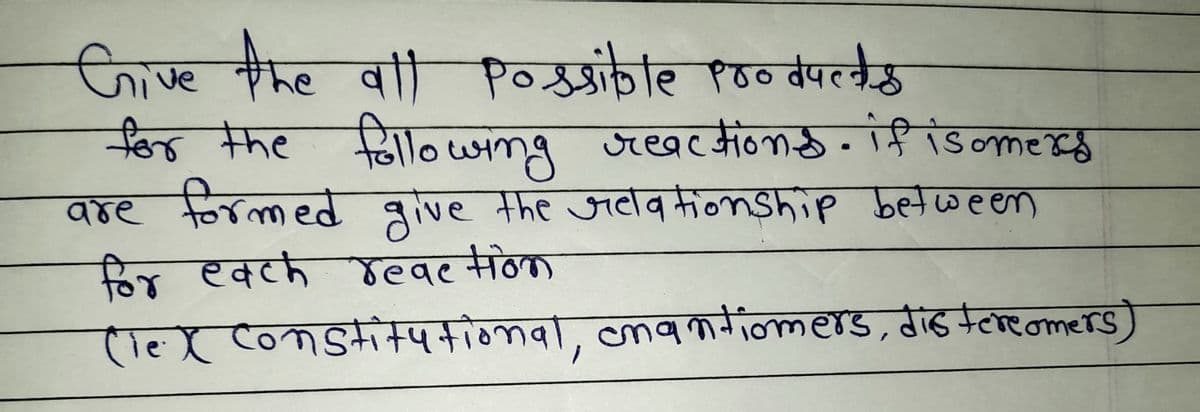 Give the all possible products
for the following reactions. if isomers
are formed give the relationship between
for each reaction
(ie. X constitutional, enantiomers, distereomers)